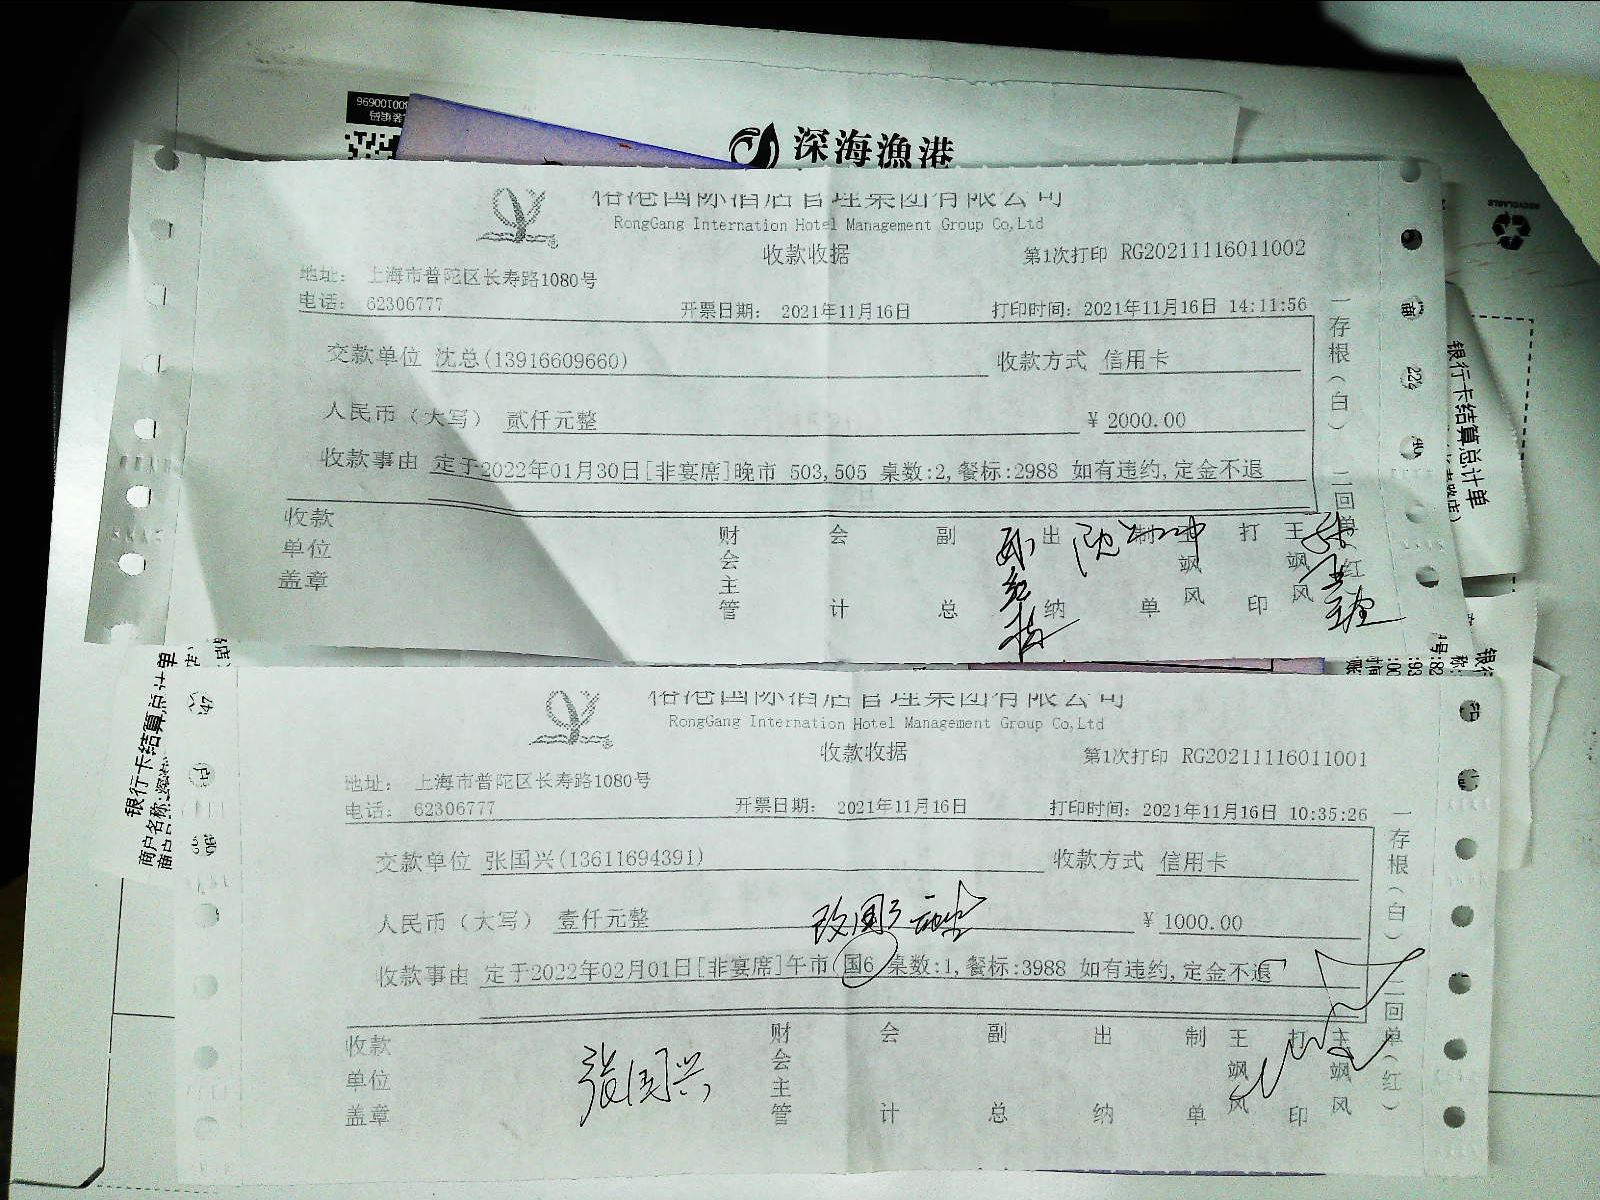 深海漁港
RongGang Internation Hotel Management Group Co,Ltd
收款收据
第1次打印 RG20211116011002
地址： 上海市普陀区长寿路1080号
电话： 62306777 开票日期： 2021年11月16日 打印时间：2021年11月16日 14:11:56
交款单位 沈总(13916609660) 收款方式 信用卡
人民币（大写） 贰仟元整 ￥2000.00
收款事由 定于2022年01月30日[非宴席]晚市 503,505 桌数:2,餐标:2988 如有违约,定金不退
一存根（白） 二回单（红）
收款单位盖章 财会主管 会计 副总 出纳 制单 王飒风 打印 王飒风
银行卡结算总计单
RongGang Internation Hotel Management Group Co,Ltd
收款收据
第1次打印 RG20211116011001
地址： 上海市普陀区长寿路1080号
电话： 62306777 开票日期： 2021年11月16日 打印时间：2021年11月16日 10:35:26
交款单位 张国兴(13611694391) 收款方式 信用卡
人民币（大写） 壹仟元整 ￥1000.00
收款事由 定于2022年02月01日[非宴席]午市 国6 桌数:1,餐标:3988 如有违约,定金不退
一存根（白） 二回单（红）
收款单位盖章 财会主管 会计 副总 出纳 制单 王飒风 打印 王飒风
张国兴
银行卡结算总计单
商户名称: